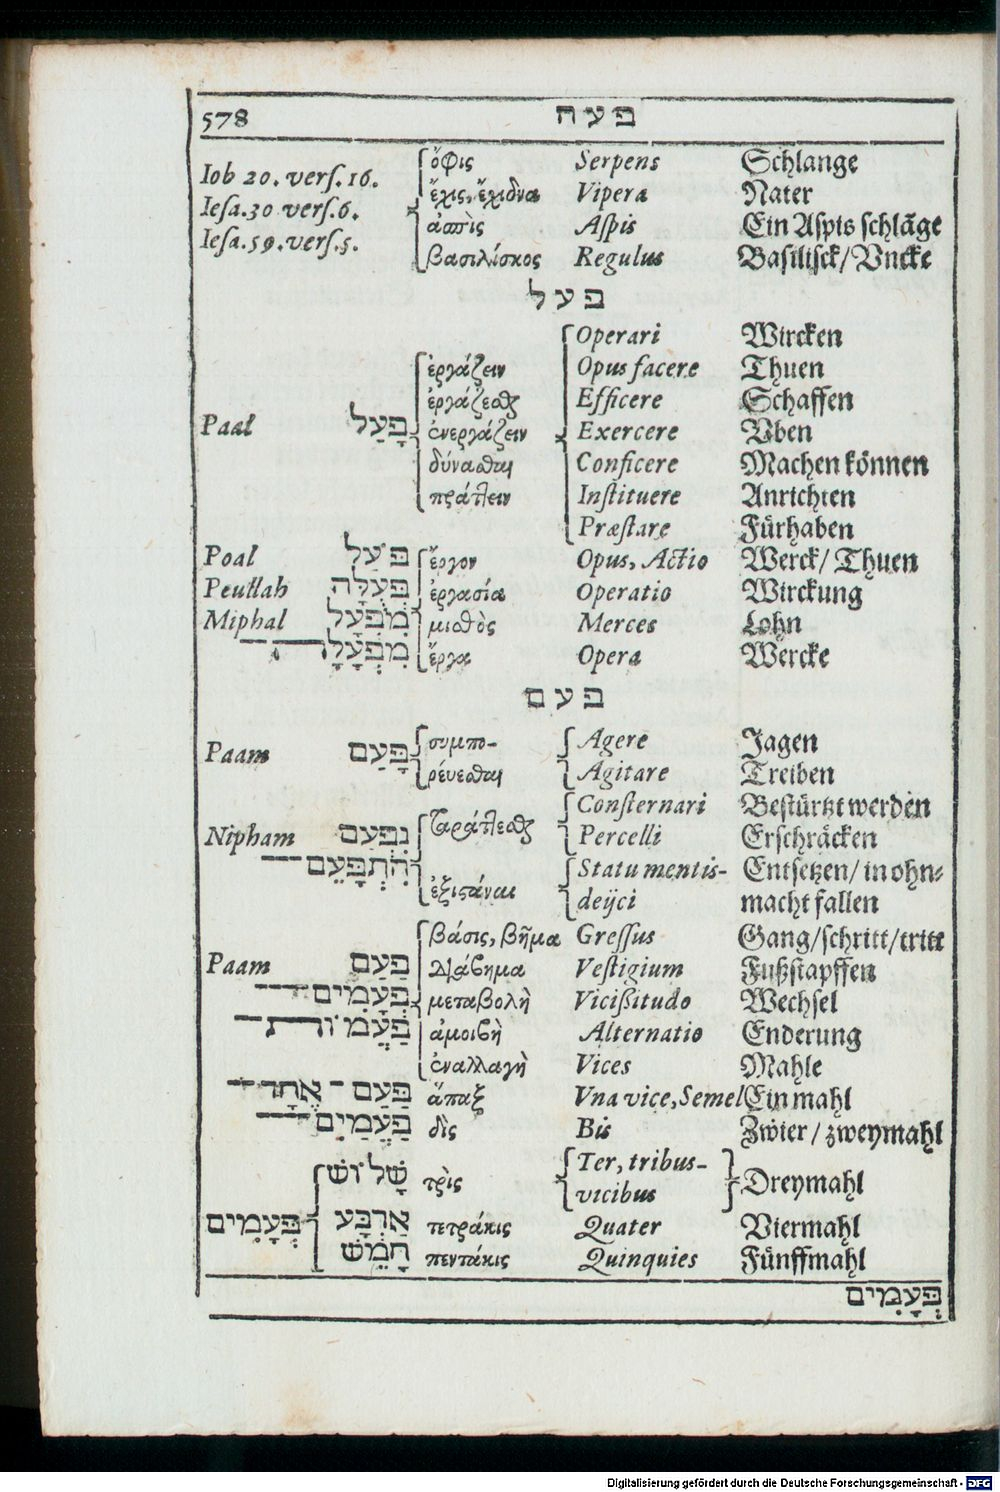 578 פעה
Iob 20. verſ. 16. ὄφις Serpens Schlange
Ieſa. 30 verſ. 6. ἔχις, ἔχιδνα Vipera Nater
Ieſa. 59. verſ. 5. ἀσπὶς Aſpis Ein Aſpis schlãge
βασιλίσκος Regulus Basilisck/ Vncke
פעל
Operari Wircken
ἐργάζειν Opus facere Thuen
ἐργάζεσθαι Efficere Schaffen
Paal פָּעַל ἐνεργάζειν Exercere Vben
δύνασθαι Conficere Machen können
πράττειν Inſtituere Anrichten
Præſtare Fürhaben
Poal פֹּעַל ἔργον Opus, Actio Werck/ Thuen
Peullah פְּעֻלָּה ἐργασία Operatio Wirckung
Miphal מִפְעָל μισθὸς Merces Lohn
מִפְעָלָה ἔργα Opera Wercke
פעם
Paam פָּעַם συμπο- Agere Jagen
ρεύεσθαι Agitare Treiben
Conſternari Bestürtzt werden
Nipham נִפְעַם ταράττεσθαι Percelli Erschräcken
הִתְפָּעֵם Statu mentis- Entsetzen/ in ohn-
ἐξιστάναι deijci macht fallen
βάσις, βῆμα Greſſus Gang/schritt/tritt
Paam פַּעַם διάβημα Veſtigium Fußstapffen
פְּעָמִים μεταβολὴ Viciſsitudo Wechsel
פַּעֲמוֹת ἀμοιβὴ Alternatio Enderung
ἐναλλαγὴ Vices Mahle
פַּעַם אֶחָד ἅπαξ Vna vice, Semel Ein mahl
פַּעֲמַיִם δὶς Bis Zwier/ zweymahl
שָׁלוֹשׁ τρὶς Ter, tribus- Dreymahl
vicibus
פְּעָמִים אַרְבַּע τετράκις Quater Viermahl
חָמֵשׁ πεντάκις Quinquies Fünffmahl
פְּעָמִים
Digitalisierung gefördert durch die Deutsche Forschungsgemeinschaft - DFG